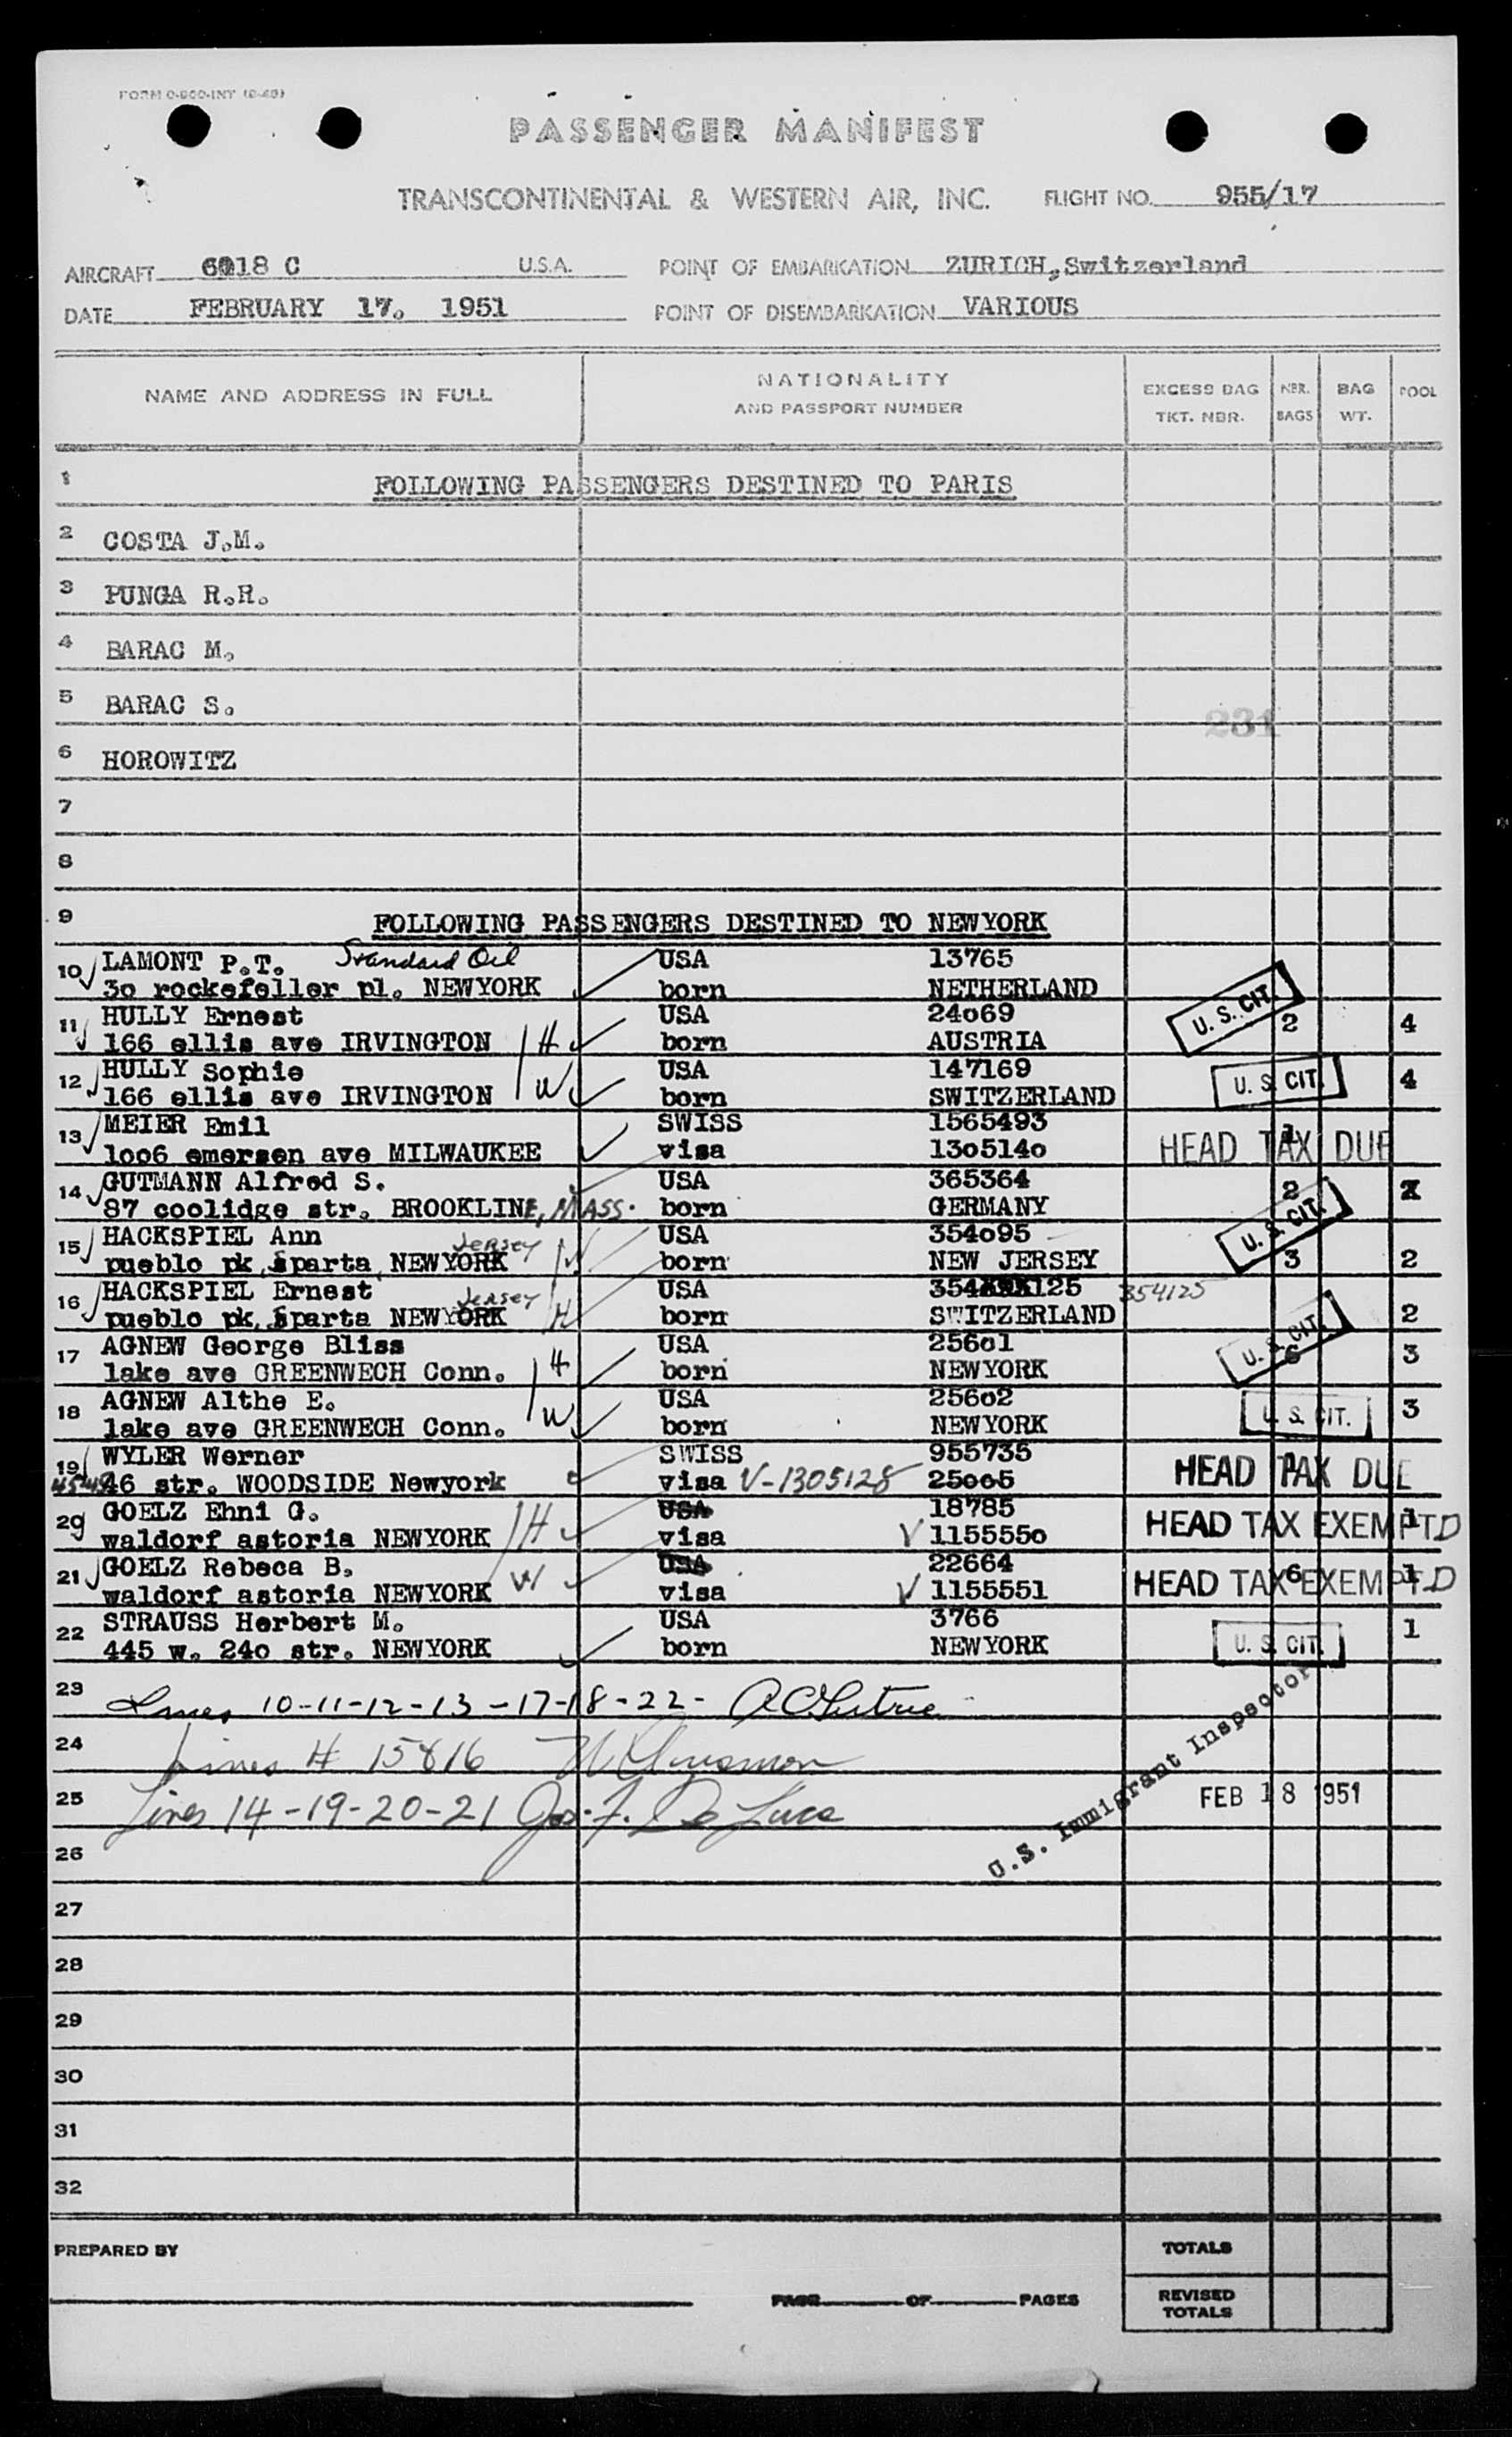 FORM O-900-INT (9-49)
PASSENGER MANIFEST
TRANSCONTINENTAL & WESTERN AIR, INC. FLIGHT NO. 955/17
AIRCRAFT 6018 C U.S.A. POINT OF EMBARKATION ZURICH, Switzerland
DATE FEBRUARY 17. 1951 POINT OF DISEMBARKATION VARIOUS
NAME AND ADDRESS IN FULL NATIONALITY AND PASSPORT NUMBER EXCESS BAG TKT. NBR. NBR. BAGS BAG WT. POOL
1 FOLLOWING PASSENGERS DESTINED TO PARIS
2 COSTA J.M.
3 PUNGA R.R.
4 BARAC M.
5 BARAC S.
231
6 HOROWITZ
7
8
9 FOLLOWING PASSENGERS DESTINED TO NEWYORK
10 LAMONT P.T. Standard Oil USA 13765
3o rockefeller pl. NEWYORK born NETHERLAND U. S. CIT.
11 HULLY Ernest USA 24o69 2 4
166 ellis ave IRVINGTON H born AUSTRIA
12 HULLY Sophie USA 147169 U. S. CIT. 4
166 ellis ave IRVINGTON W born SWITZERLAND
13 MEIER Emil SWISS 1565493 1
1oo6 emersen ave MILWAUKEE visa 13o514o HEAD TAX DUE
14 GUTMANN Alfred S. USA 365364 2
87 coolidge str. BROOKLINE, MASS. born GERMANY U. S. CIT.
15 HACKSPIEL Ann JERSEY USA 354o95
pueblo pk, Sparta, NEWYORK W born NEW JERSEY 3 2
16 HACKSPIEL Ernest JERSEY USA 354XXX125 354125
pueblo pk, Sparta NEWYORK H born SWITZERLAND U. S. CIT. 2
17 AGNEW George Bliss USA 256o1 6 3
lake ave GREENWECH Conn. H born NEWYORK
18 AGNEW Althe E. USA 256o2 U. S. CIT. 3
lake ave GREENWECH Conn. W born NEWYORK
19 WYLER Werner SWISS 955735 HEAD TAX DUE
46 str. WOODSIDE Newyork visa V-1305128 25oo5
20 GOELZ Ehni G. USA 18785 HEAD TAX EXEMPTD 1
waldorf astoria NEWYORK H visa V 115555o
21 GOELZ Rebeca B. USA 22664 HEAD TAX EXEMPTD 6 1
waldorf astoria NEWYORK W visa V 1155551
22 STRAUSS Herbert M. USA 3766 1
445 w. 24o str. NEWYORK born NEWYORK U. S. CIT.
23 Lines 10-11-12-13-17-18-22-
24 Lines # 15 & 16
25 Lines 14-19-20-21 Jos. F. De Luca
U.S. Immigrant Inspector
FEB 18 1951
26
27
28
29
30
31
32
PREPARED BY TOTALS
PAGE OF PAGES REVISED TOTALS